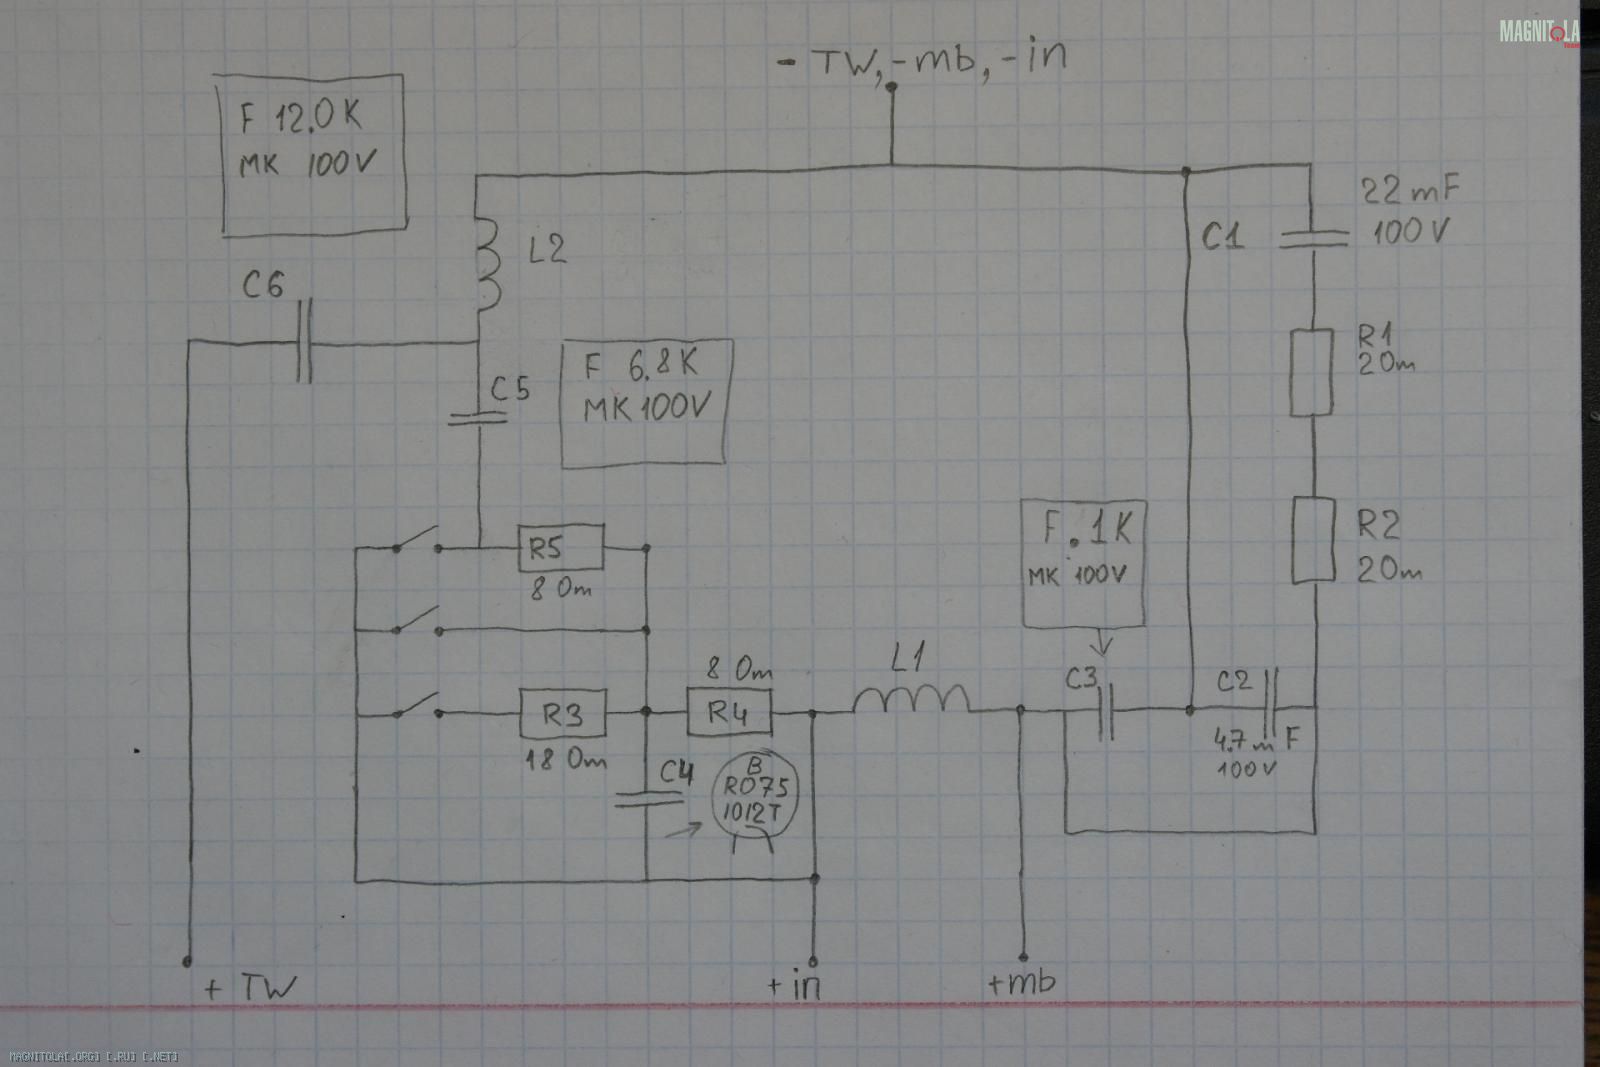 MAGNITOLA
Team
- TW, -mb, -in
F 12.0 K
MK 100V
22 mF
100 V
C1
L2
C6
R1
20m
F 6.8 K
MK 100V
C5
F .1 K
MK 100V
R2
20m
R5
8 0m
L1
8 0m
C3
C2
R3
R4
4.7 m F
100 V
18 0m
C4
B
R075
1012T
+ TW
+ in
+mb
MAGNITOLA[.ORG] [.RU] [.NET]